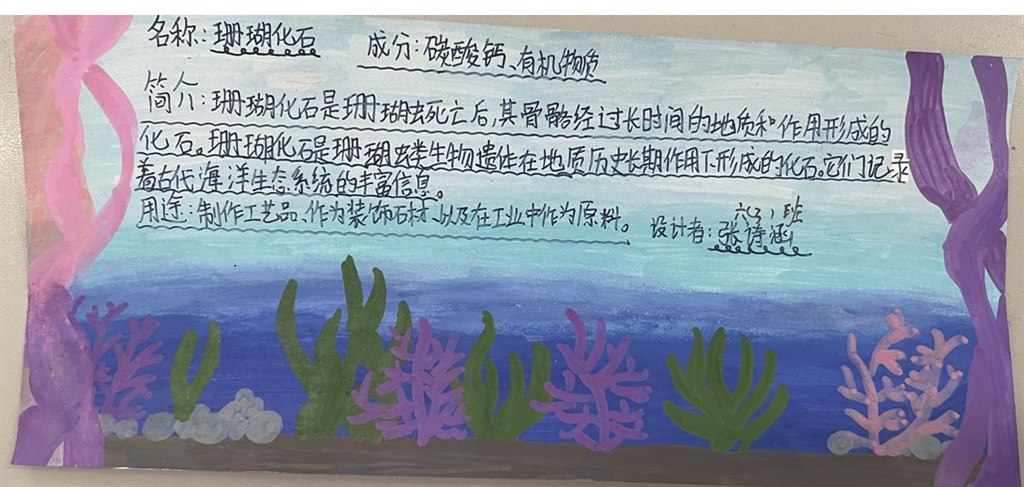 名称：珊瑚化石 成分：碳酸钙、有机物质
简介：珊瑚化石是珊瑚虫死亡后,其骨骼经过长时间的地质和作用形成的
化石。珊瑚化石是珊瑚类生物遗体在地质历史长期作用下形成的化石。它们记录
着古代海洋生态系统的丰富信息。
用途：制作工艺品、作为装饰石材、以及在工业中作为原料。
六(3)班
设计者：张诗涵